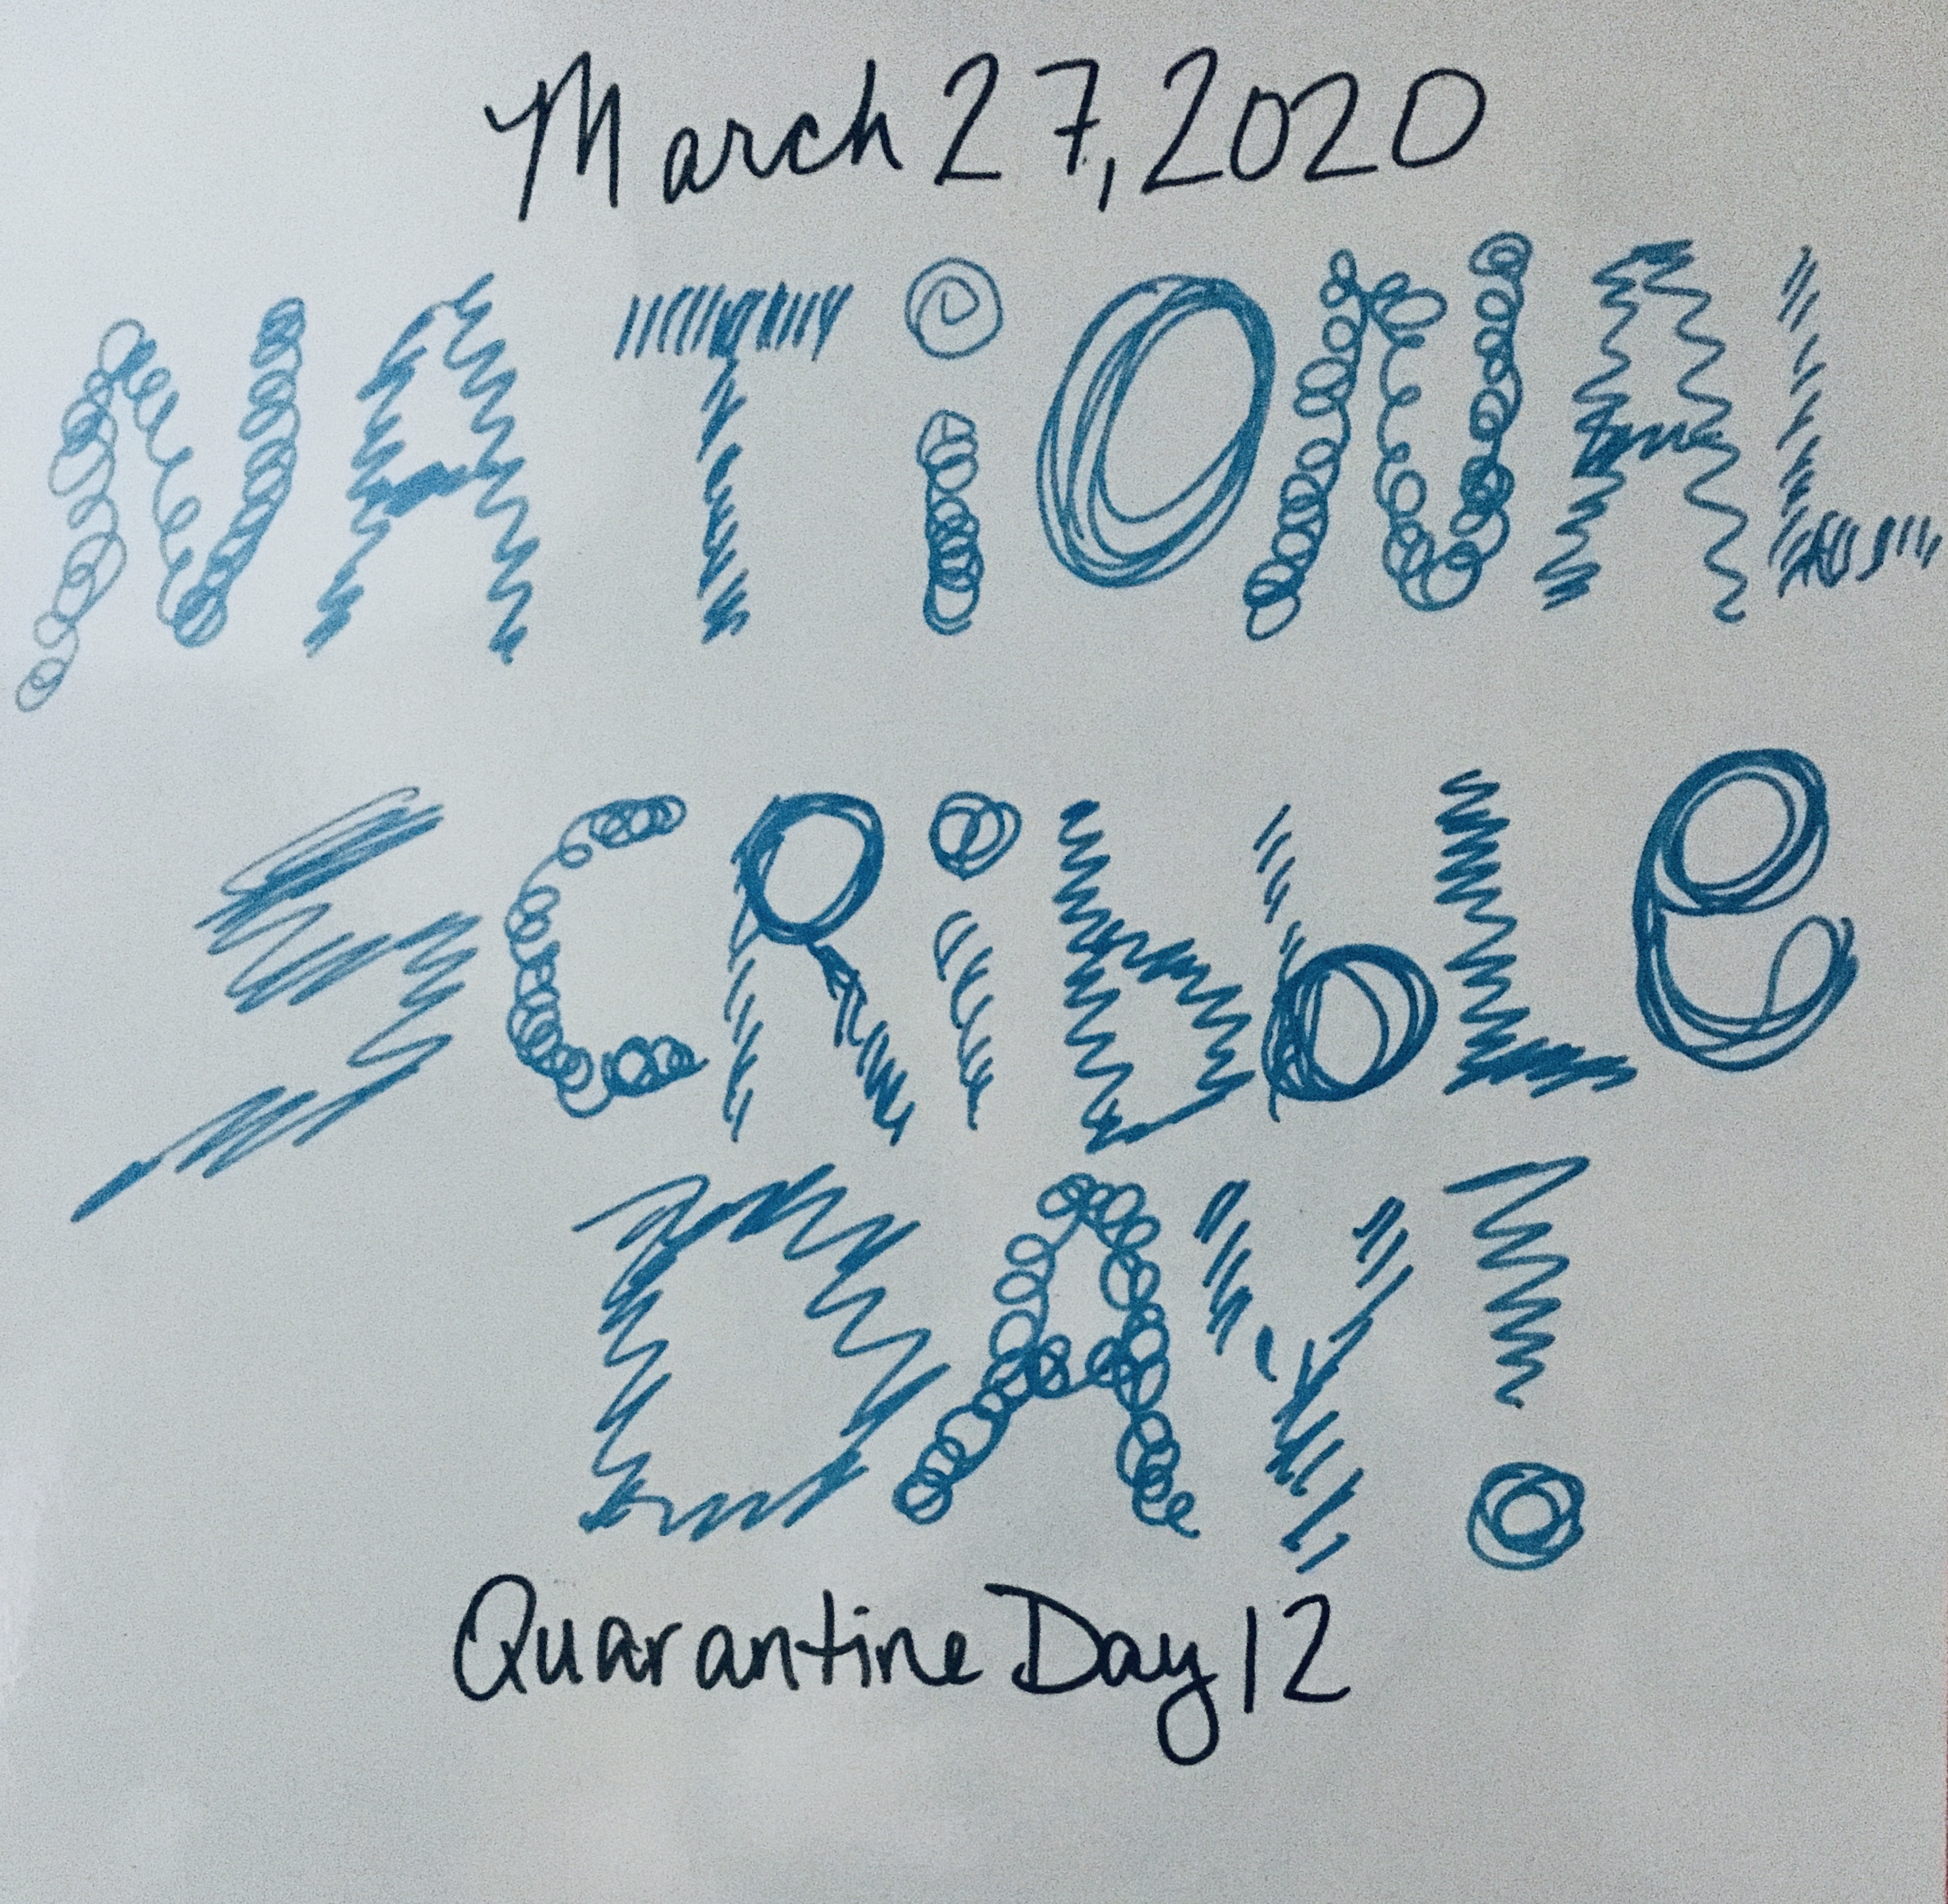 March 27, 2020
NATiONAL
SCRibbLe
DAY!
Quarantine Day 12